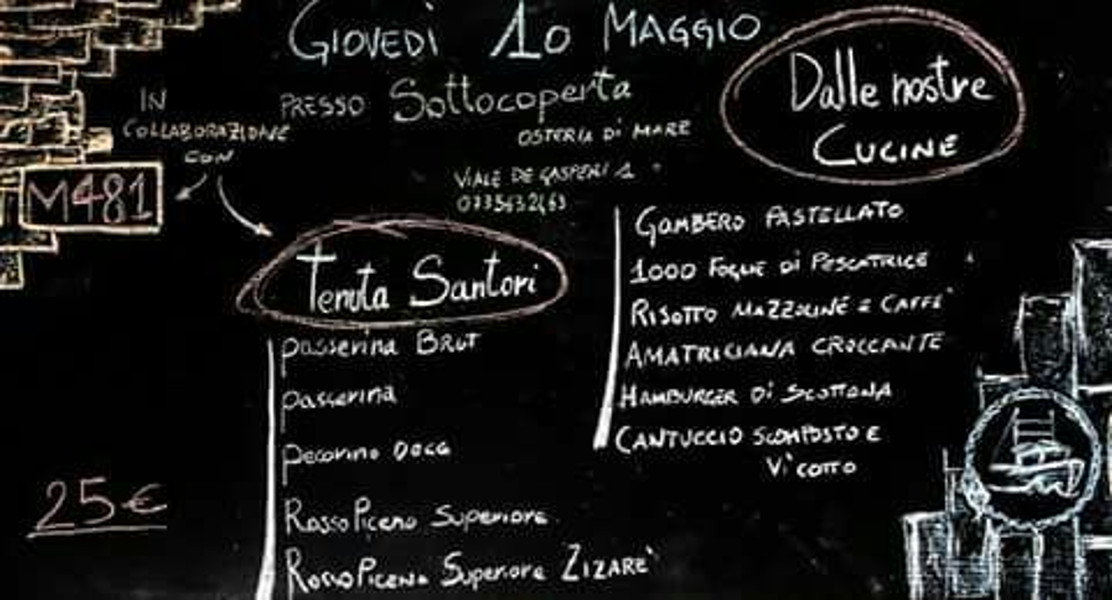 GIOVEDÌ 10 MAGGIO
PRESSO Sottocoperta
OSTERIA DI MARE
VIALE DE GASPERI 1
IN
COLLABORAZIONE
CON
M481
Tenuta Santori
passerina BRUT
passerina
pecorino DOCG
Rosso Piceno Superiore
Rosso Piceno Superiore ZIZARE'
25€
Dalle nostre
CUCINE
GAMBERO PASTELLATO
1000 FOGLIE DI PESCATRICE
RISOTTO MAZZOLINE E CAFFE'
AMATRICIANA CROCCANTE
HAMBURGER DI SCOTTONA
CANTUCCIO SCOMPOSTO E
VI'COTTO